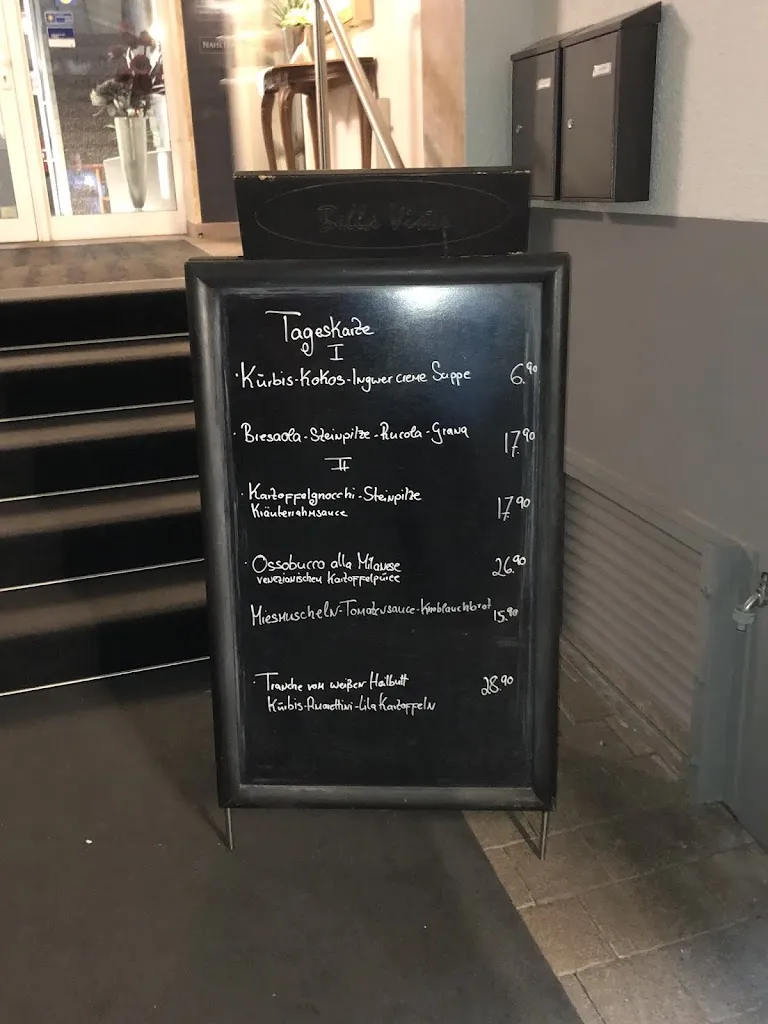 Bella Vista
Tageskarte
I
· Kürbis-Kokos-Ingwer creme Suppe 6.90
· Bresaola-Steinpilze-Rucola-Grana 17.90
II
· Kartoffelgnocchi-Steinpilze 17.90
Kräuterrahmsauce
· Ossobucco alla Milanese 26.90
venezianischen Kartoffelpüree
Miesmuscheln-Tomatensauce-Knoblauchbrot 15.90
· Tranche vom weißen Heilbutt 28.90
Kürbis- -Lila Kartoffeln